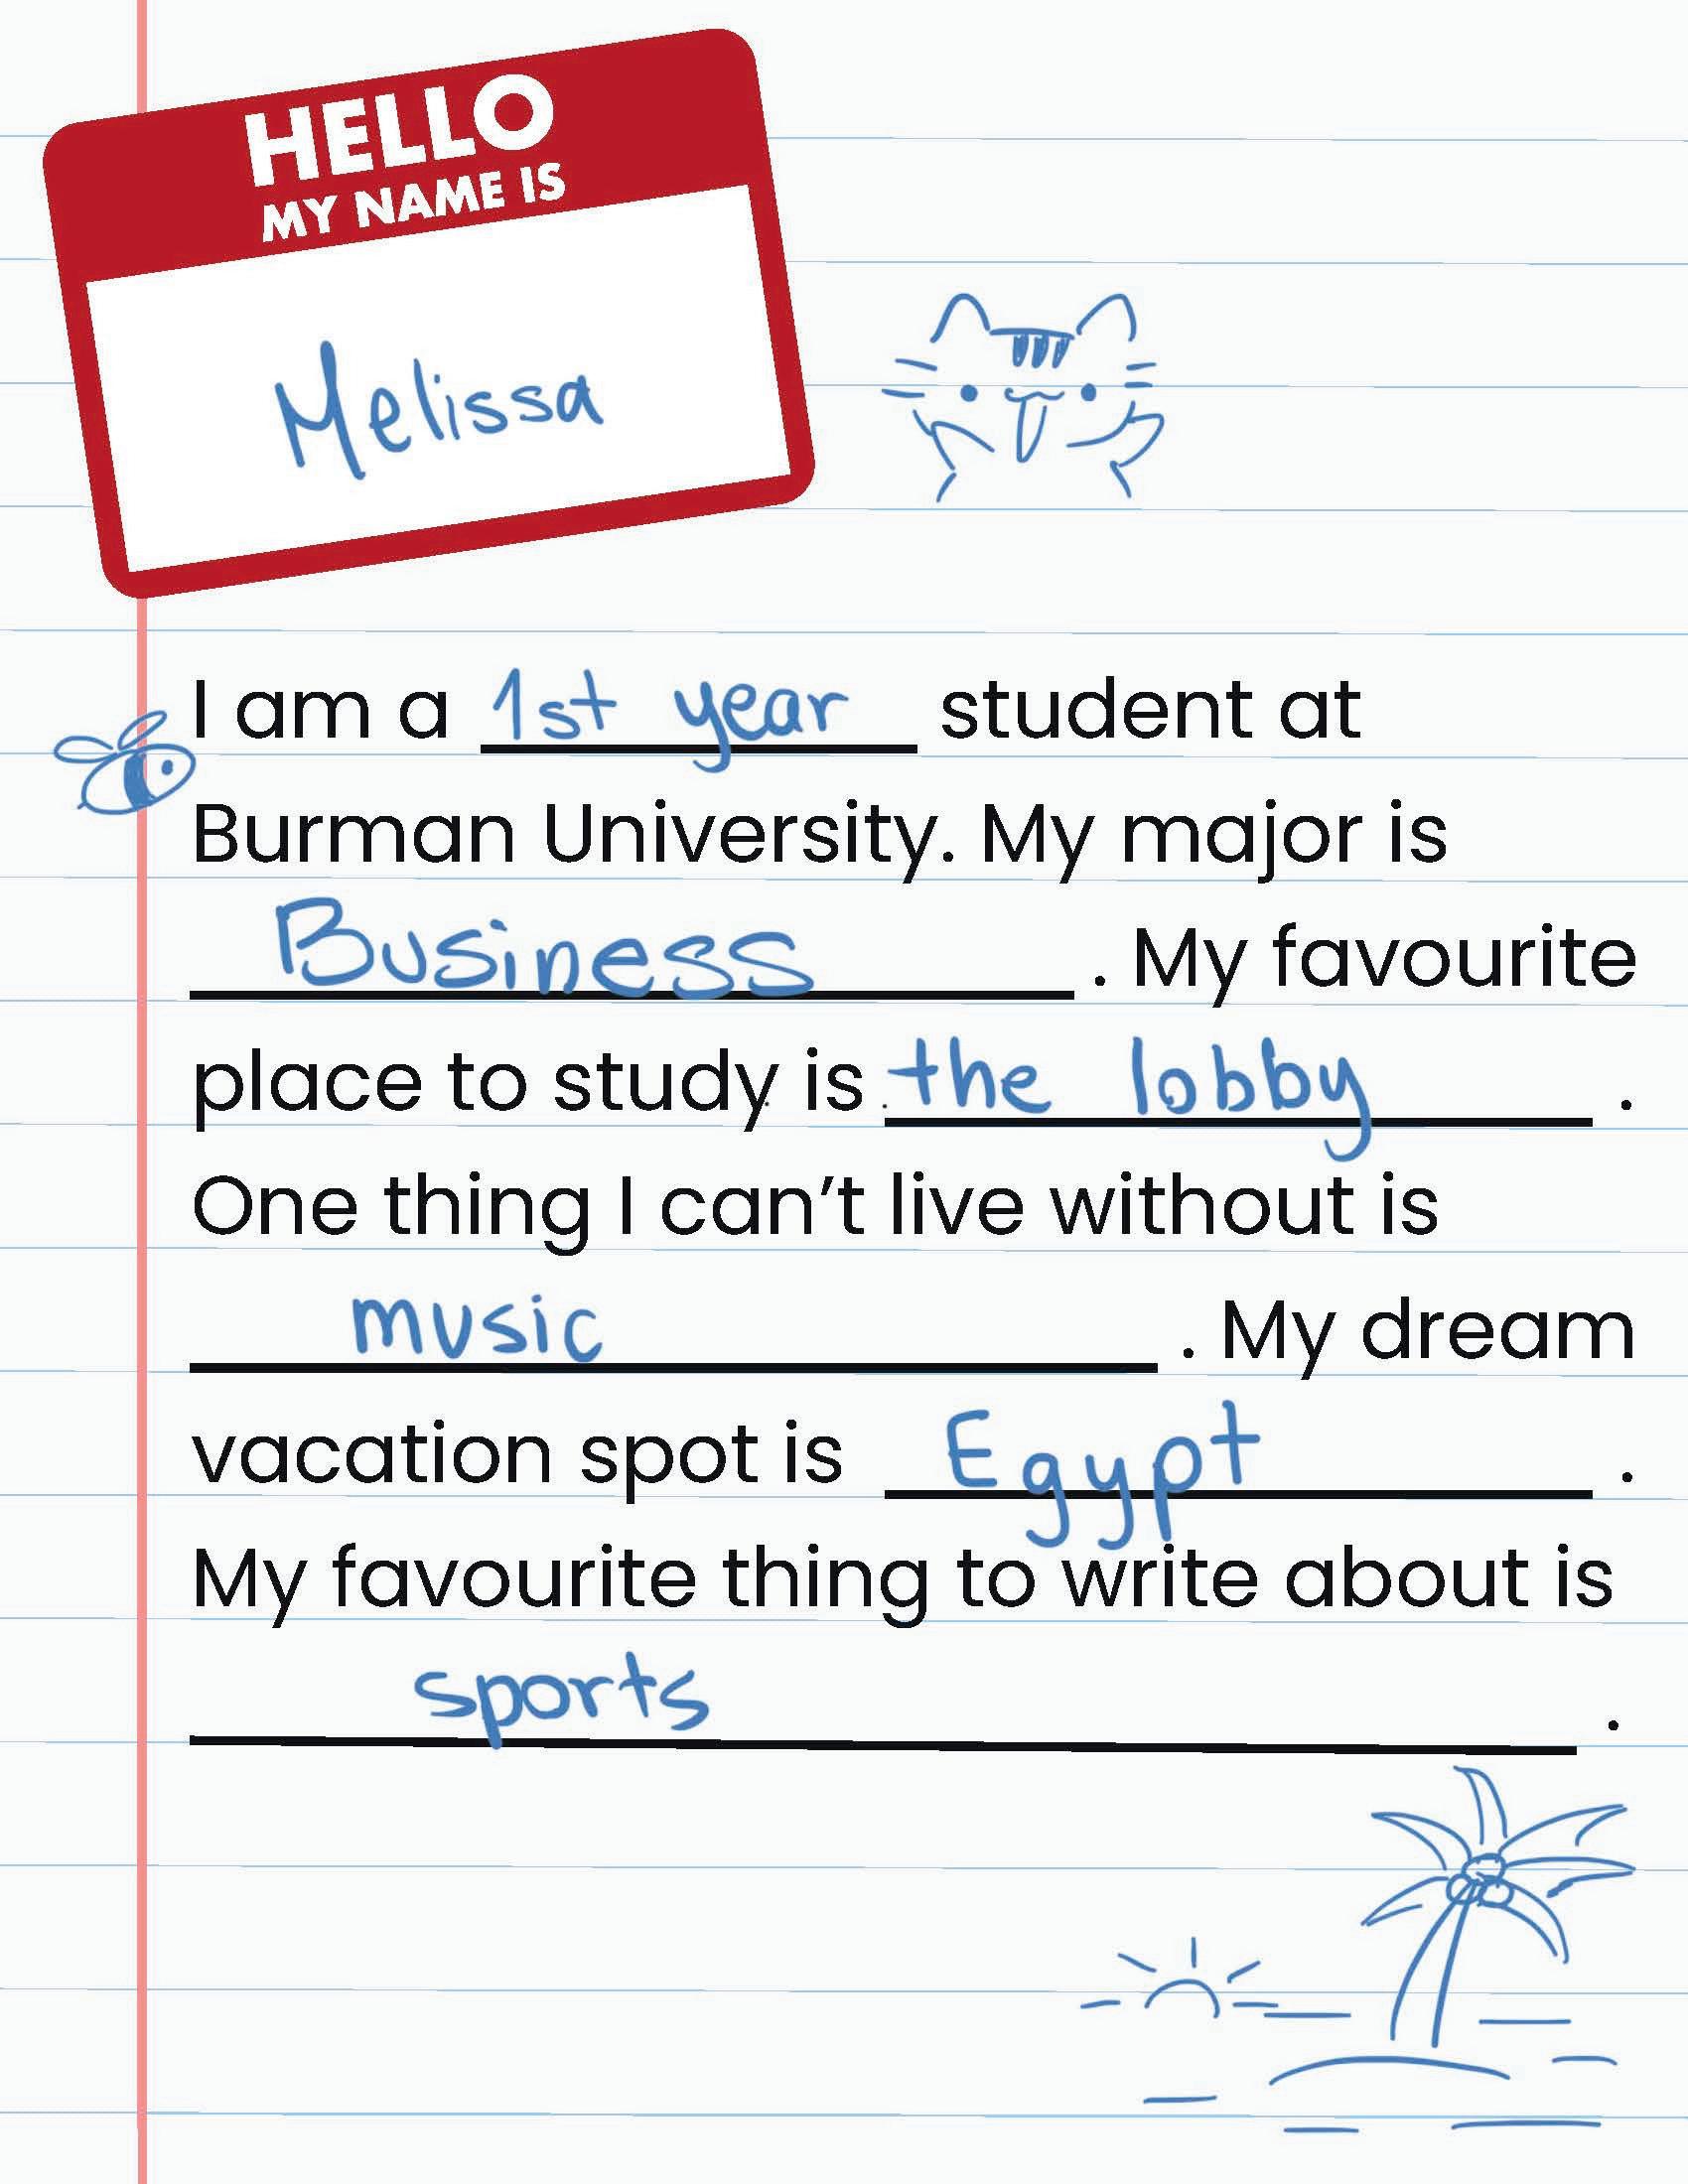 HELLO
MY NAME IS
Melissa
I am a 1st year student at
Burman University. My major is
Business . My favourite
place to study is the lobby .
One thing I can’t live without is
music . My dream
vacation spot is Egypt .
My favourite thing to write about is
sports .